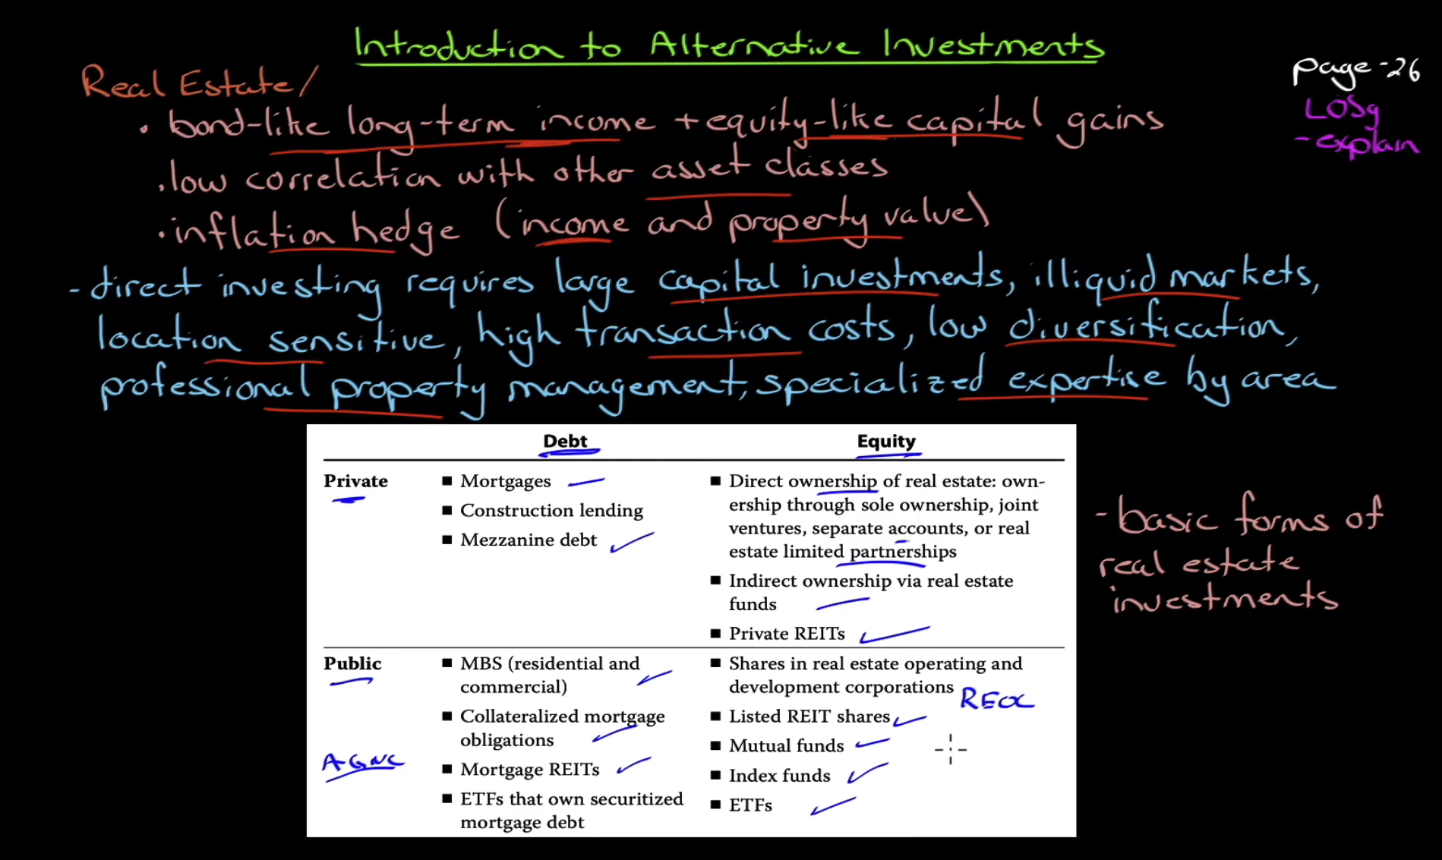 Introduction to Alternative Investments
page -26
LOSg
- explain
Real Estate/
• bond-like long-term income + equity-like capital gains
• low correlation with other asset classes
• inflation hedge (income and property value)
- direct investing requires large capital investments, illiquid markets,
location sensitive, high transaction costs, low diversification,
professional property management, specialized expertise by area
Debt Equity
Private
■ Mortgages
■ Construction lending
■ Mezzanine debt
■ Direct ownership of real estate: own-
ership through sole ownership, joint
ventures, separate accounts, or real
estate limited partnerships
■ Indirect ownership via real estate
funds
■ Private REITs
Public
■ MBS (residential and
commercial)
■ Collateralized mortgage
obligations
■ Mortgage REITs
■ ETFs that own securitized
mortgage debt
■ Shares in real estate operating and
development corporations
■ Listed REIT shares
■ Mutual funds
■ Index funds
■ ETFs
REOC
AGNC
- basic forms of
real estate
investments